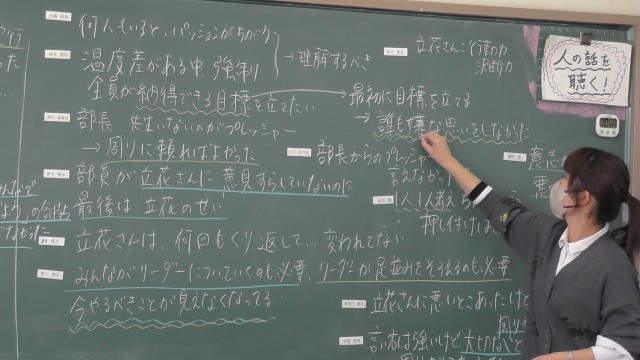 何人もいると、パッションがちがう
温度差がある中、強制
→理解するべき
全員が納得できる目標を立てたい
→最初に目標を立てる
→誰も嫌な思いをしなかった
部長、先生いないのがプレッシャー
→周りに頼ればよかった
部員が立花さんに意見すらしていないのに
最後は立花のせい
立花さんは、何回もくり返して…変われてない
みんながリーダーについていくのも必要、リーダーが足並みをそろえるのも必要
今やるべきことが見えなくなってる
立花さん:行動力
決断力
部長からのプレッシャー
言えなかった
1人1人考え
押し付けは
意志
悪
立花さんに悪いとこあったけど
周り
言い方は強いけど大切なこと
人の話を
聴く!